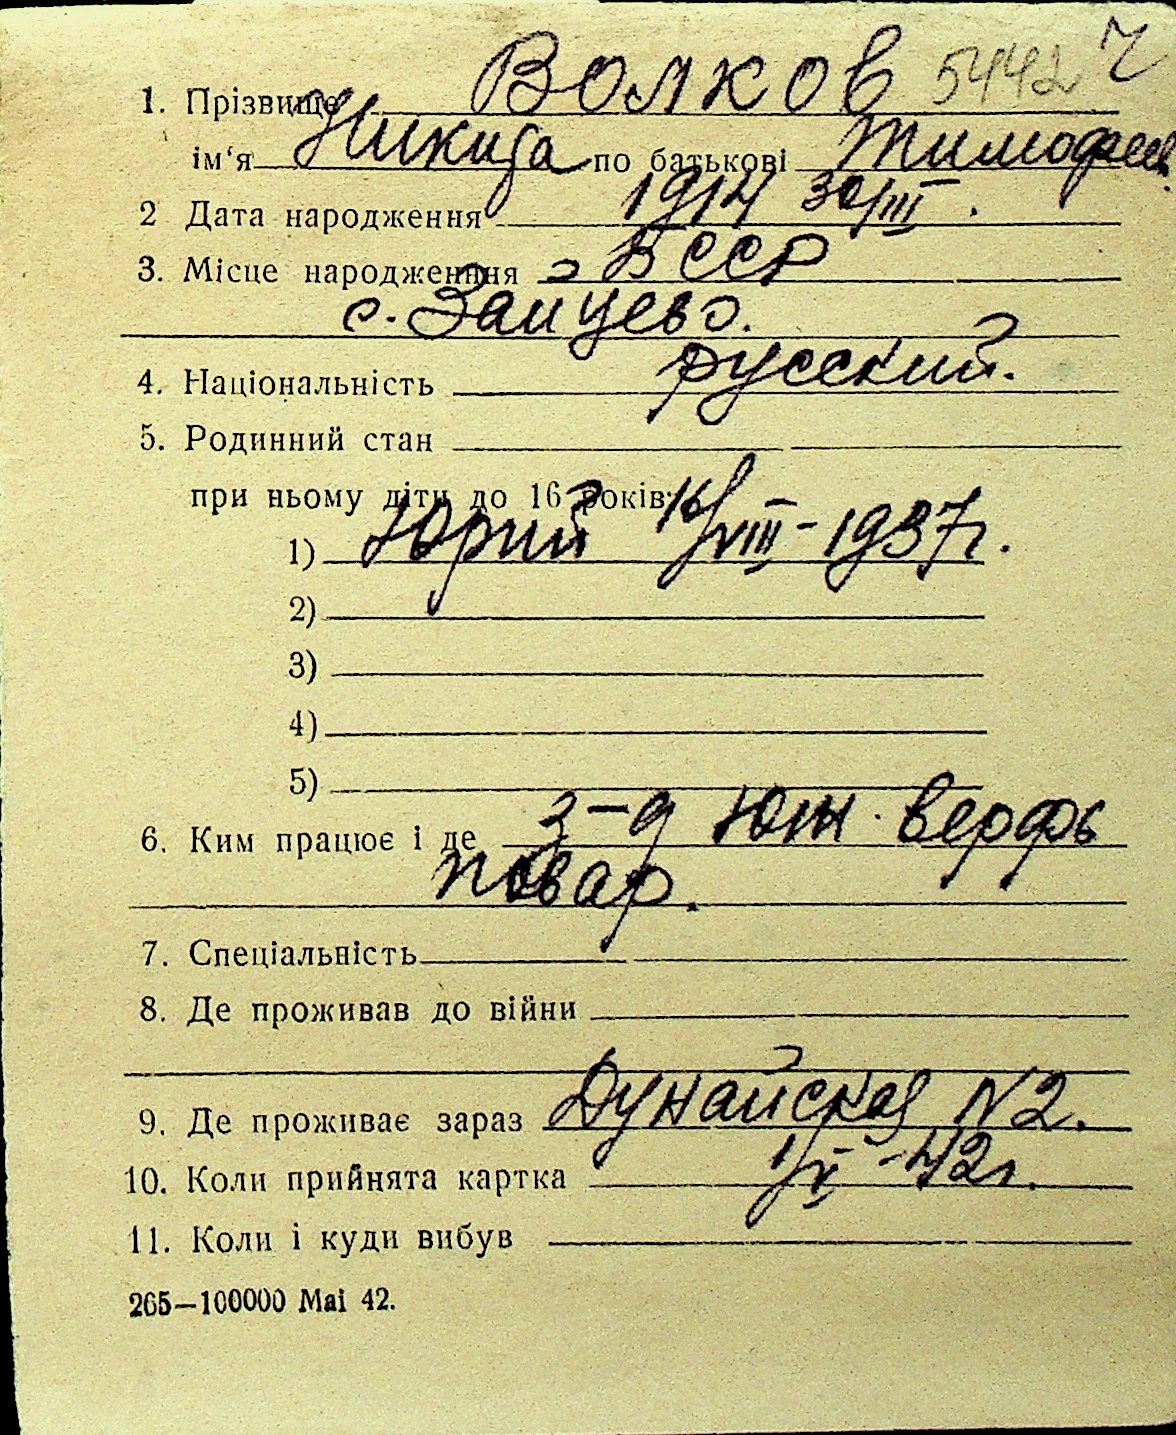 1. Прізвище Волков 5442 Ч
ім‘я Никита по батькові Тимофеев.
2 Дата народження 1914 30/III.
3. Місце народженння БССР
с. Зайцево.
4. Національність русский.
5. Родинний стан
при ньому діти до 16 років:
1) Юрий 16/VIII-1937г.
2)
3)
4)
5)
6. Ким працює і де з-д Юж. верфь
повар.
7. Спеціальність
8. Де проживав до війни
9. Де проживає зараз Дунайская N2.
10. Коли прийнята картка 1/X-42г.
11. Коли і куди вибув
265—100000 Mai 42.